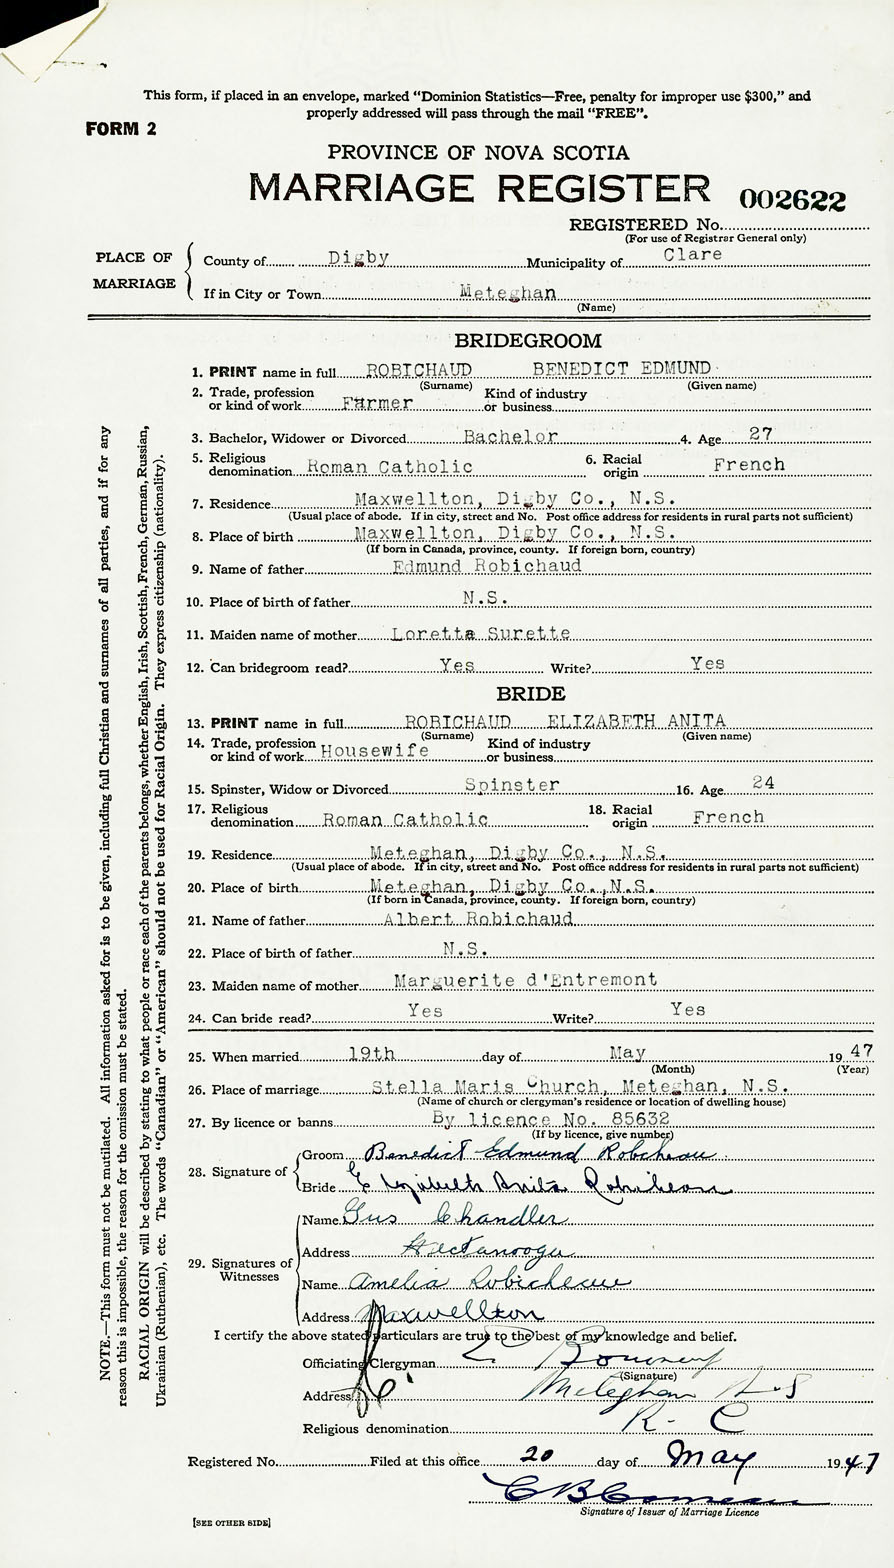 This form, if placed in an envelope, marked “Dominion Statistics—Free, penalty for improper use $300,” and
properly addressed will pass through the mail “FREE”.
FORM 2
PROVINCE OF NOVA SCOTIA
MARRIAGE REGISTER 002622
REGISTERED No.
(For use of Registrar General only)
PLACE OF MARRIAGE
County of Digby Municipality of Clare
If in City or Town Meteghan
(Name)
BRIDEGROOM
1. PRINT name in full ROBICHAUD BENEDICT EDMUND
(Surname) (Given name)
2. Trade, profession or kind of work Farmer Kind of industry or business
3. Bachelor, Widower or Divorced Bachelor 4. Age 27
5. Religious denomination Roman Catholic 6. Racial origin French
7. Residence Maxwellton, Digby Co., N.S.
(Usual place of abode. If in city, street and No. Post office address for residents in rural parts not sufficient)
8. Place of birth Maxwellton, Digby Co., N.S.
(If born in Canada, province, county. If foreign born, country)
9. Name of father Edmund Robichaud
10. Place of birth of father N.S.
11. Maiden name of mother Loretta Surette
12. Can bridegroom read? Yes Write? Yes
BRIDE
13. PRINT name in full ROBICHAUD ELIZABETH ANITA
(Surname) (Given name)
14. Trade, profession or kind of work Housewife Kind of industry or business
15. Spinster, Widow or Divorced Spinster 16. Age 24
17. Religious denomination Roman Catholic 18. Racial origin French
19. Residence Meteghan, Digby Co., N.S.
(Usual place of abode. If in city, street and No. Post office address for residents in rural parts not sufficient)
20. Place of birth Meteghan, Digby Co.,N.S.
(If born in Canada, province, county. If foreign born, country)
21. Name of father Albert Robichaud
22. Place of birth of father N.S.
23. Maiden name of mother Marguerite d'Entremont
24. Can bride read? Yes Write? Yes
25. When married 19th day of May 19 47
(Month) (Year)
26. Place of marriage Stella Maris Church, Meteghan, N.S.
(Name of church or clergyman's residence or location of dwelling house)
27. By licence or banns By licence No. 85632
(If by licence, give number)
28. Signature of
Groom Benedict Edmund Robicheau
Bride Elizabeth Anita Robicheau
29. Signatures of Witnesses
Name Gus Chandler
Address Hectanooga
Name Amelia Robicheau
Address Maxwellton
I certify the above stated particulars are true to the best of my knowledge and belief.
Officiating Clergyman
(Signature)
Address Meteghan N S
Religious denomination R - C
Registered No. Filed at this office 20 day of May 1947
C B Comeau
Signature of Issuer of Marriage Licence
[SEE OTHER SIDE]
NOTE.—This form must not be mutilated. All information asked for is to be given, including full Christian and surnames of all parties, and if for any
reason this is impossible, the reason for the omission must be stated.
RACIAL ORIGIN will be described by stating to what people or race each of the parents belongs, whether English, Irish, Scottish, French, German, Russian,
Ukrainian (Ruthenian), etc. The words “Canadian” or “American” should not be used for Racial Origin. They express citizenship (nationality).